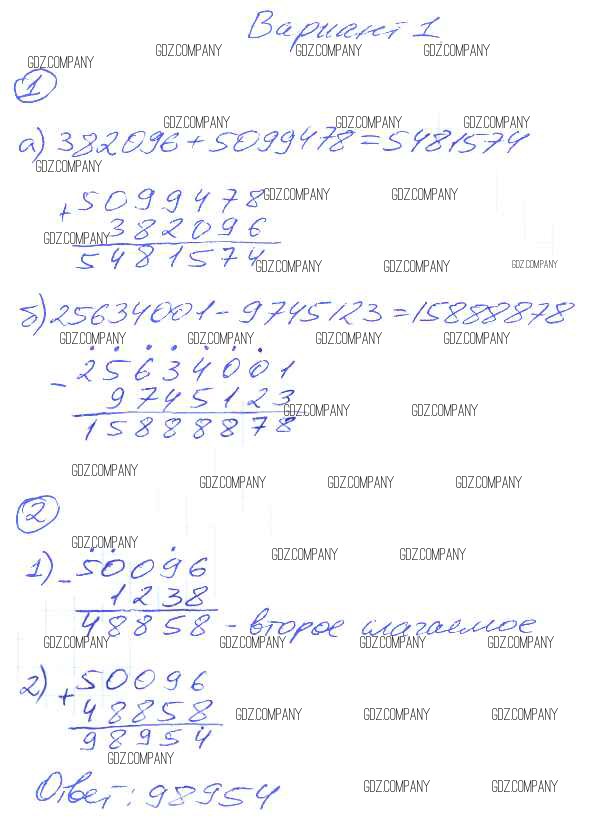 Вариант 1
GDZ.COMPANY GDZ.COMPANY GDZ.COMPANY
GDZ.COMPANY
1
GDZ.COMPANY GDZ.COMPANY GDZ.COMPANY
а) 382096 + 5099478 = 5481574
GDZ.COMPANY
+ 5099478
GDZ.COMPANY GDZ.COMPANY
382096
GDZ.COMPANY
5481574
GDZ.COMPANY GDZ.COMPANY GDZ.COMPANY
б) 25634001 - 9745123 = 15888878
GDZ.COMPANY GDZ.COMPANY GDZ.COMPANY GDZ.COMPANY
- 25634001
9745123
GDZ.COMPANY GDZ.COMPANY
15888878
GDZ.COMPANY
GDZ.COMPANY GDZ.COMPANY GDZ.COMPANY
2
GDZ.COMPANY
GDZ.COMPANY GDZ.COMPANY
1) - 50096
1238
48858 - второе слагаемое
GDZ.COMPANY GDZ.COMPANY GDZ.COMPANY GDZ.COMPANY
2) + 50096
48858
GDZ.COMPANY GDZ.COMPANY GDZ.COMPANY
98954
GDZ.COMPANY
Ответ: 98954
GDZ.COMPANY GDZ.COMPANY